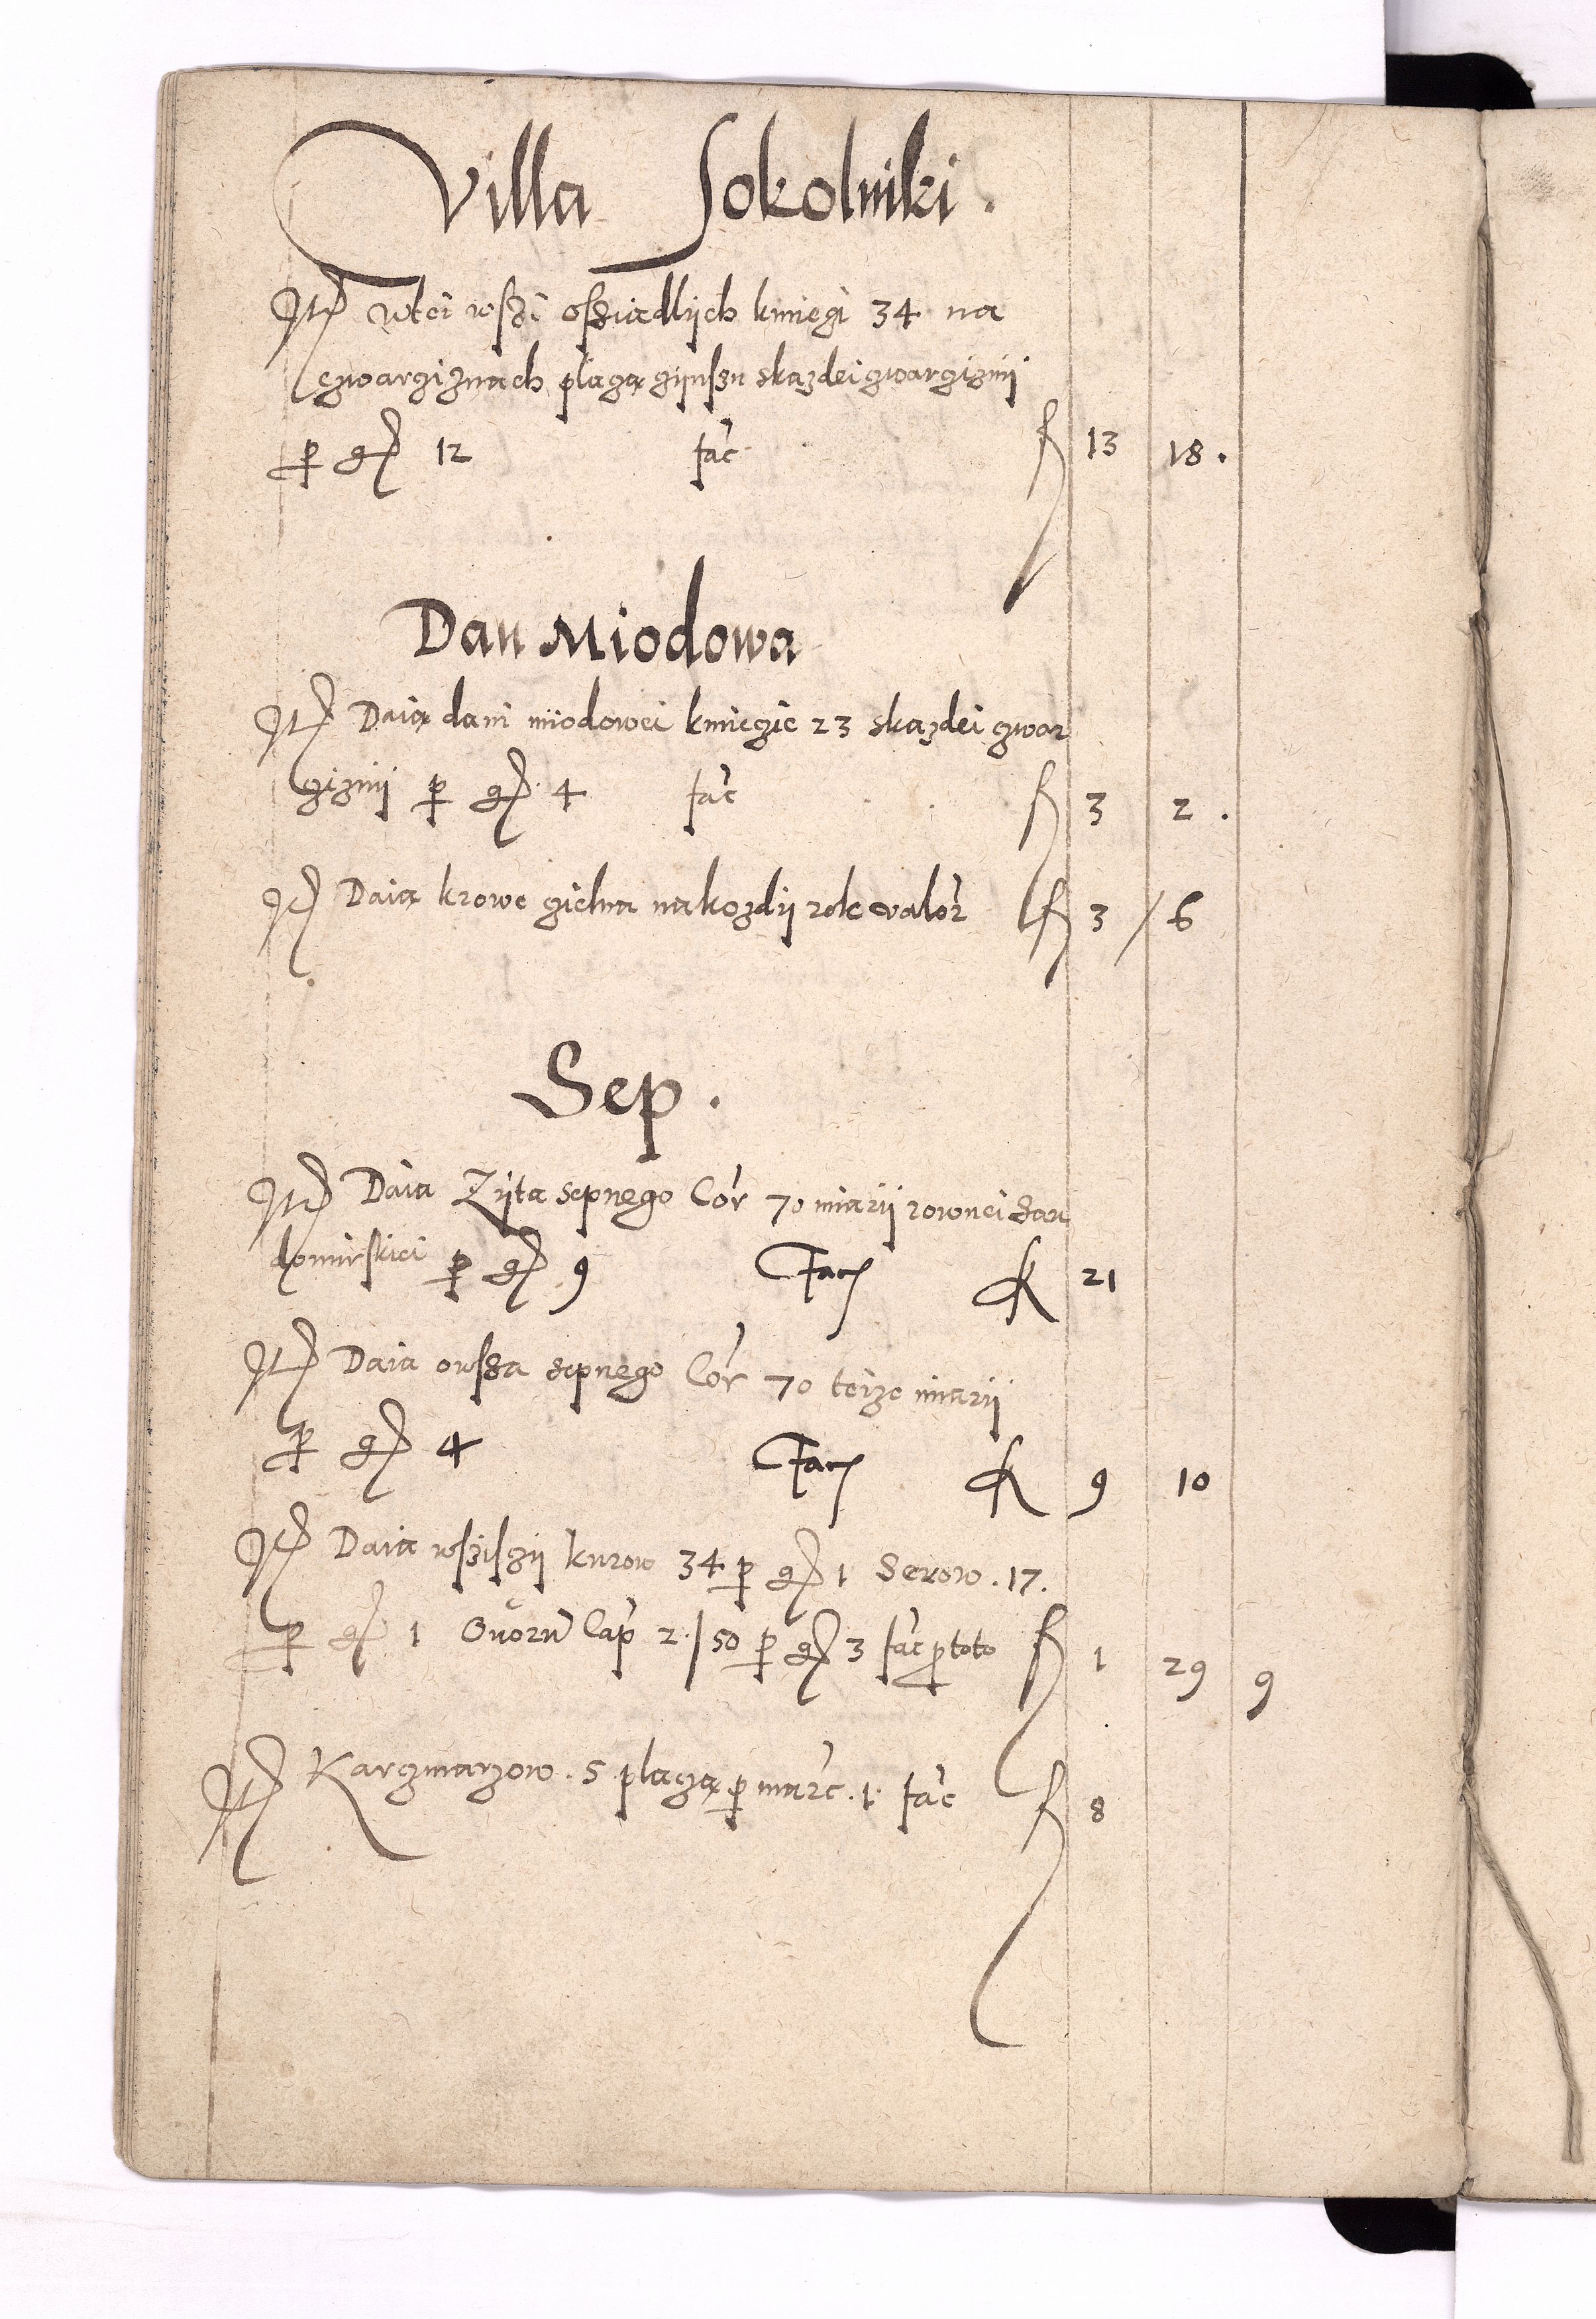 Villa Sokolniki.
Itē wtei wsżi osziadlijch kmiegi 34 na
czwargiznach plaga gijnszu skazdei gwargiznij
p gr 12 fac fl 13 18.
Dan Miodowa
Itē Daią dani miodowei kmiegie 23 skazdei gwar
giznij p gr 4 fac fl 3 2.
Itē Daią krowe giedna nakozdij rok valor fl 3 / 6
Sep.
Itē Daia Zijta sepnego Cor 70 miarij rownei san
domirskiei p gr 9 Fac fl 21
Itē Daia owsza sepnego Cor 70 teize miarij
p gr 4 Fac fl 9 10
Itē Daia wszisgij kurow 34 p gr 1 Serow. 17.
p gr 1 Ovoru Cap 2/50 p gr 3 fac p toto fl 1 29 9
Itē Kargmarzow. 5 plaga p marc. 1. fac fl 8